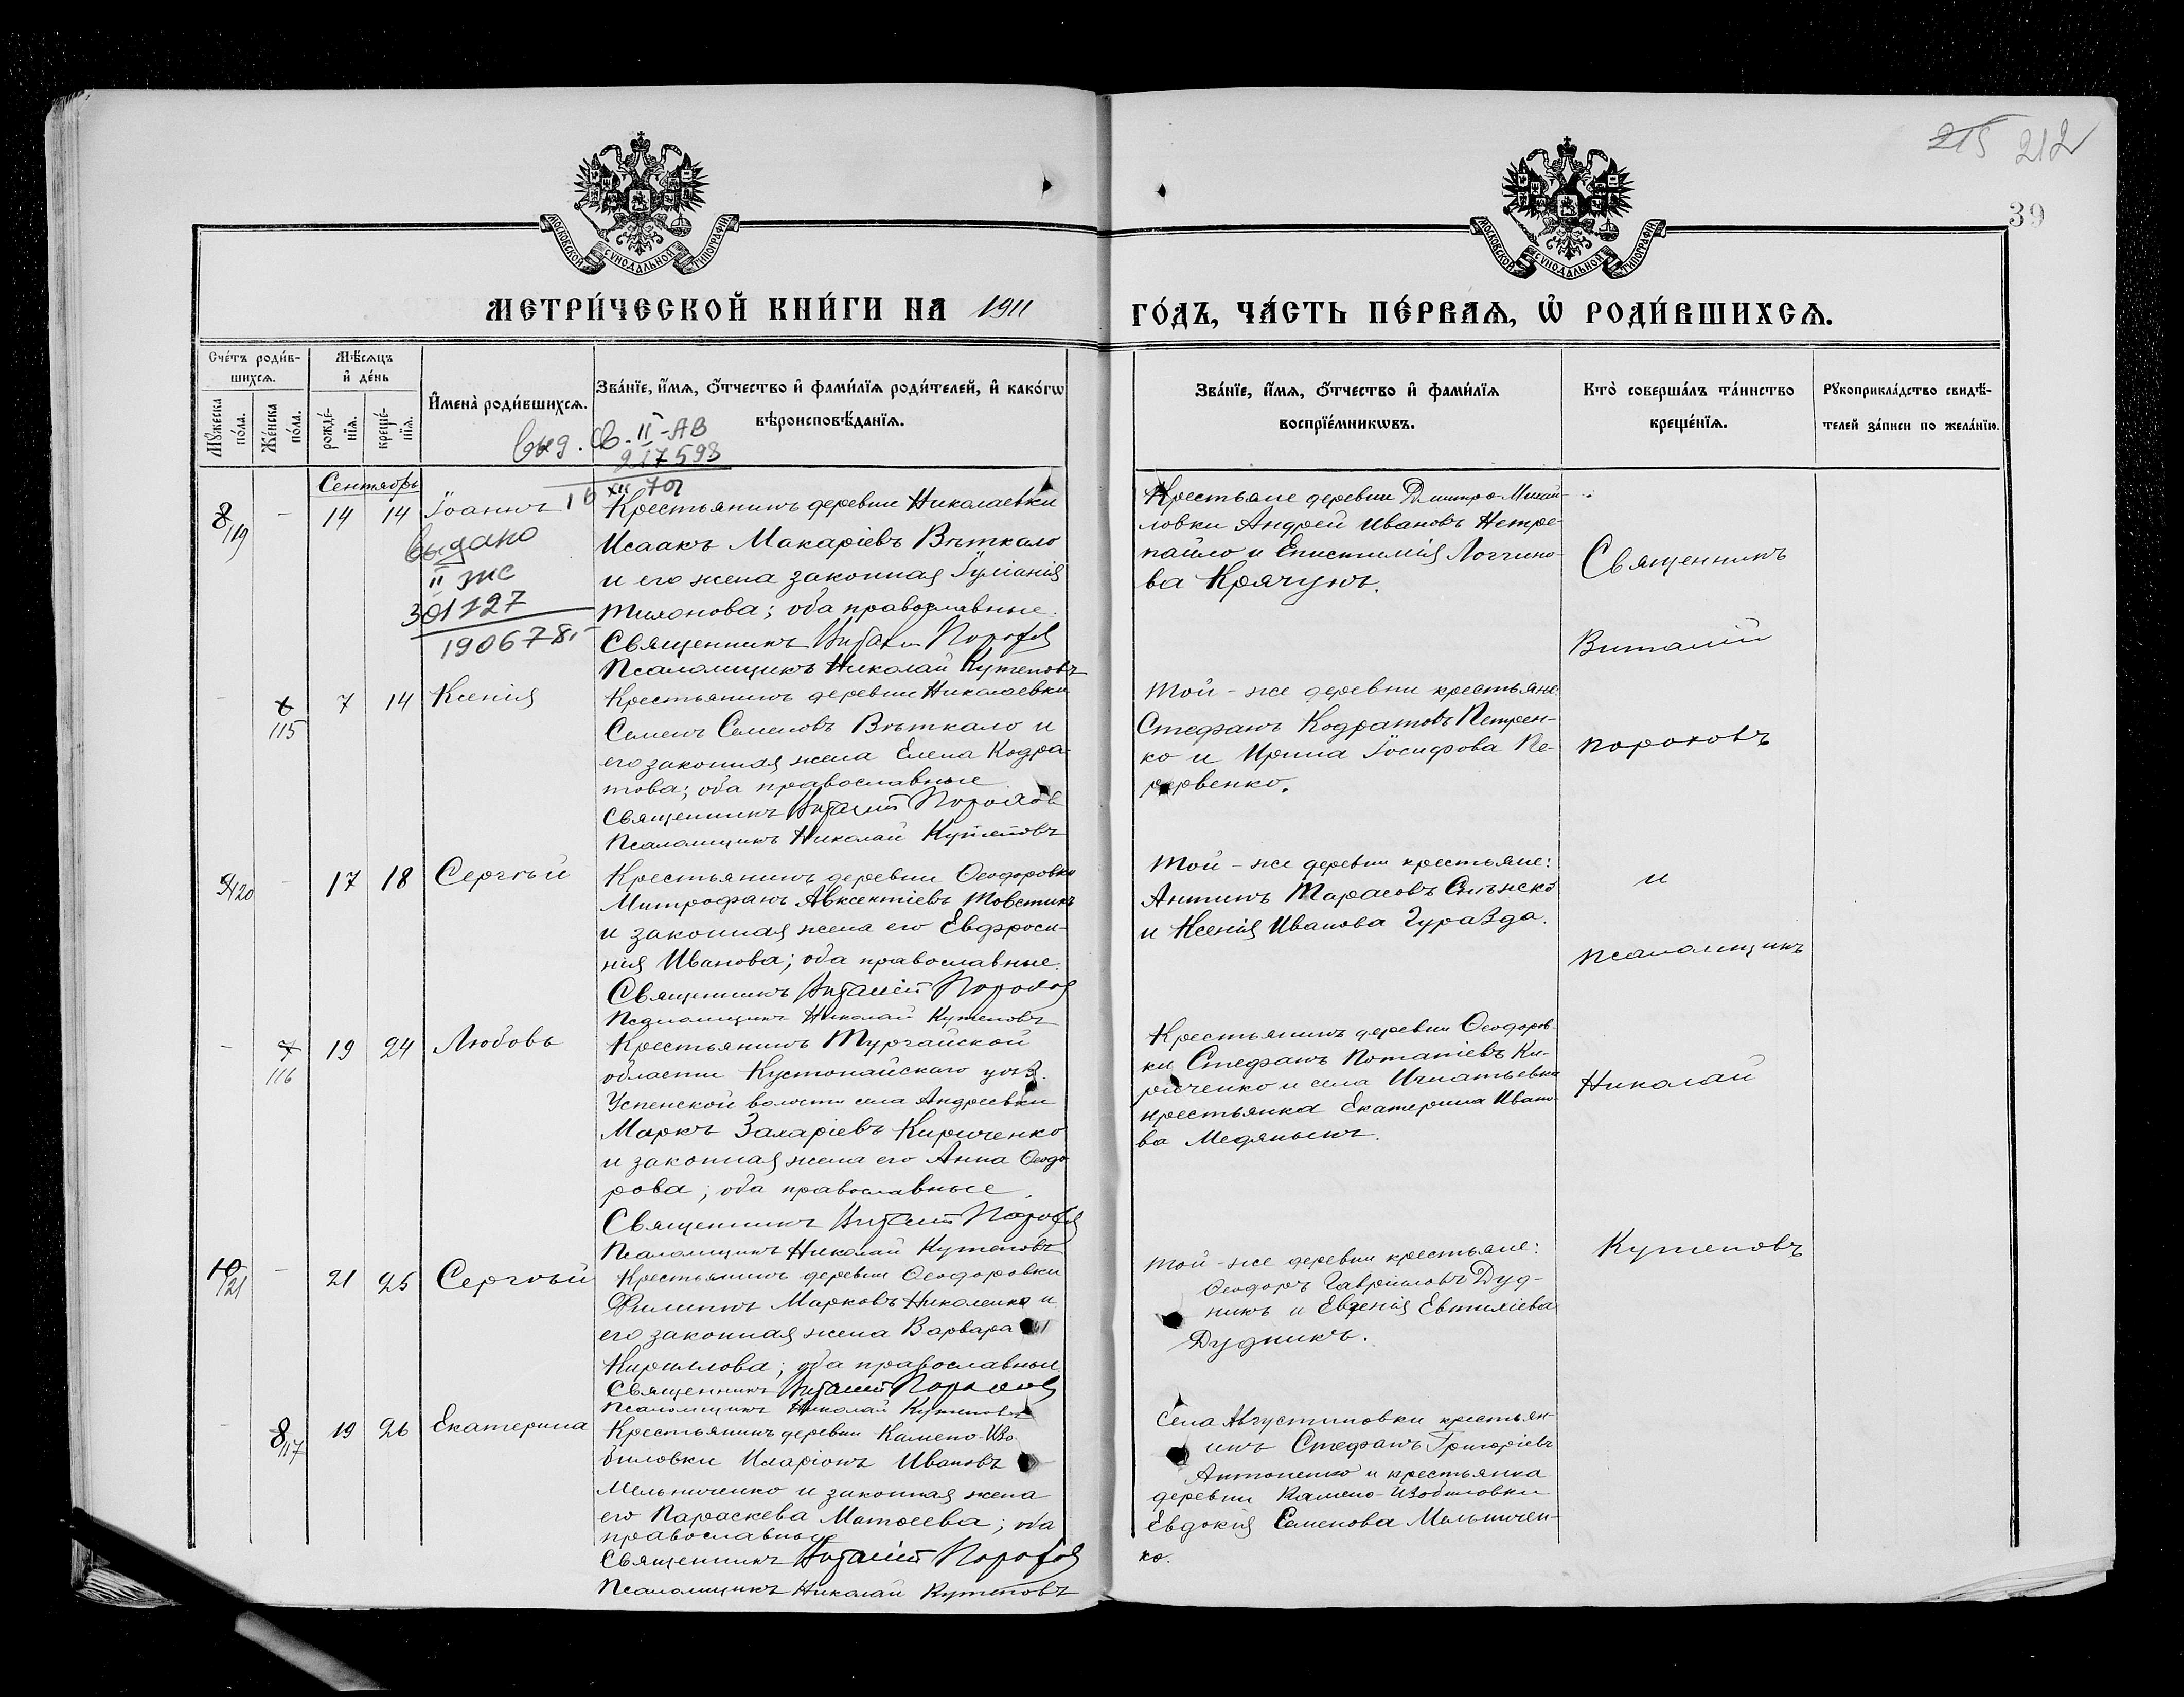 215 212
39
МОСКОВСКОЙ СѴНОДАЛЬНОЙ ТИПОГРАФІИ
МОСКОВСКОЙ СѴНОДАЛЬНОЙ ТИПОГРАФІИ
МЕТРИ́ЧЕСКОЙ КНИ́ГИ НА 1911
ГО́ДЪ, ЧА́СТЬ ПЕ́РВАѦ, Ѡ҆ РОДИ́ВШИХСѦ.
Сче́тъ роди́в-
шихсѧ.
Мꙋ́жеска по́ла.
Же́нска по́ла.
Мѣ́сѧцъ
и҆ де́нь
рожде́-
нїѧ.
креще́-
нїѧ.
И҆мена̀ роди́вшихсѧ.
Зва́нїе, и҆́мѧ, ѻ҆́тчество и҆ фами́лїѧ роди́телей, и҆ како́гѡ
вѣроисповѣ́данїѧ.
Зва́нїе, и҆́мѧ, ѻ҆́тчество и҆ фами́лїѧ
воспрїе́мникѡвъ.
Кто̀ соверша́лъ та́инство
креще́нїѧ.
Рꙋкоприкла́дство свидѣ́-
телей за́писи по жела́нїю.
выд. св. II-АВ
917598
16 XII 70г
Сентябрь
8/19 - 14 14 Іоаннъ
выдано
II ЖС
301727
190678г
Крестьянинъ деревни Николаевки
Исаакъ Макаріевъ Вѣткало
и его жена законная Іуліанія
Тихонова; оба православные.
Священникъ Виталій Пороховъ
Псаломщикъ Николай Кутеповъ
Крестьяне деревни Дмитро-Михай-
ловки Андрей Ивановъ Нетре-
пайло и Епистимія Логгино-
ва Крячунъ.
Священникъ
Виталій
Пороховъ
и
псаломщикъ
Николай
Кутеповъ
- 6 115 7 14 Ксенія
Крестьянинъ деревни Николаевки
Семенъ Семеновъ Вѣткало и
его законная жена Елена Кодра-
това; оба православные
Священникъ Виталій Пороховъ
Псаломщикъ Николай Кутеповъ
Той-же деревни крестьяне:
Стефанъ Кодратовъ Петрен-
ко и Ирина Іосифова Пе-
рервенко.
9/120 - 17 18 Сергѣй
Крестьянинъ деревни Ѳеодоровки
Митрофанъ Авксентіевъ Товстикъ
и законная жена его Евфроси-
нія Иванова; оба православные.
Священникъ Виталій Пороховъ
Псаломщикъ Николай Кутеповъ
Той-же деревни крестьяне:
Антипъ Тарасовъ
и Ксенія Иванова
- 7 116 19 24 Любовь
Крестьянинъ Тургайской
области Кустонайскаго уѣз.
Успенской волости села Андреевки
Маркъ Захаріевъ Кириченко
и законная жена его Анна Ѳеодо-
рова; оба православные.
Священникъ Виталій Пороховъ
Псаломщикъ Николай Кутеповъ
Крестьянинъ деревни Ѳеодоров-
ки Стефанъ Потапіевъ Ки-
риченко и села Игнатьевки
крестьянка Екатерина Ивано-
ва
10/121 - 21 25 Сергѣй
Крестьянинъ деревни Ѳеодоровки
Филиппъ Марковъ Николенко и
его законная жена Варвара
Кириллова; оба православные.
Священникъ Виталій Пороховъ
Псаломщикъ Николай Кутеповъ
Той-же деревни крестьяне:
Ѳеодоръ Гавриловъ Дуд-
никъ и Евгенія Евтихіева
Дудникъ.
- 8/117 19 26 Екатерина
Крестьянинъ деревни Камено-Изо-
биловки Иларіонъ Ивановъ
Мельниченко и законная жена
его Параскева Матѳеева; оба
православные
Священникъ Виталій Пороховъ
Псаломщикъ Николай Кутеповъ
Села Августиновки крестьян-
инъ Стефанъ Григоріевъ
Антоненко и крестьянка
деревни Камено-Изобиловки
Евдокія Семенова Мельничен-
ко.